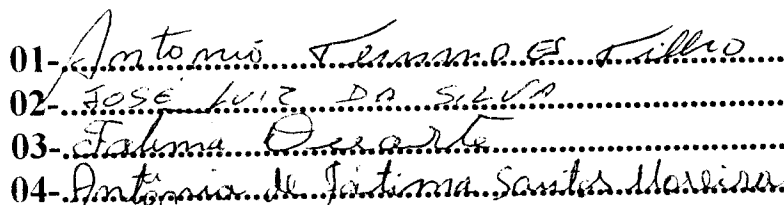 01- Antonio Fernandes Filho
02- JOSÉ LUIZ DA SILVA
03- Fatima Duarte
04- Antônia de Fátima Santos Moreira